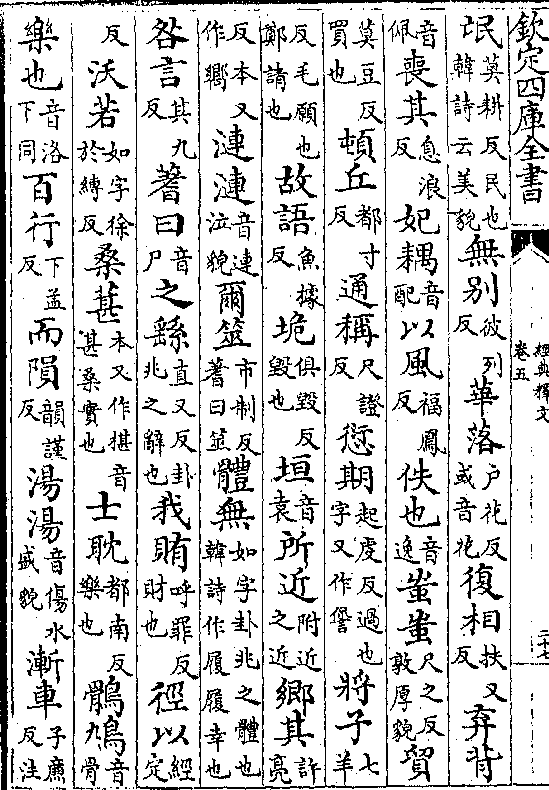 欽定四庫全書
經典釋文
卷五
二十七
氓莫耕反民也韓詩云美貌無别彼列反華落户花反或音花復相扶又反弃背
音佩喪其息浪反妃耦音配以風福鳳反佚也音逸蚩蚩尺之反敦厚貌貿
莫豆反買也頓丘都寸反通稱尺證反愆期起虔反過也字又作諐將子七羊
反毛願也鄭請也故語魚據反垝俱毁反毁也垣音袁所近附近之近鄉其許亮
反本又作嚮漣漣音連泣貌爾筮市制反蓍曰筮體無如字卦兆之體也韓詩作履履幸也
咎言其九反蓍曰音尸之繇直又反卦兆之辭也我賄呼罪反財也徑以經定
反沃若如字徐於縛反桑葚本又作椹音甚桑實也士耽都南反樂也鶻鳩音骨
樂也音洛下同百行下孟反而隕韻謹反湯湯音傷水盛貌漸車子廉反注